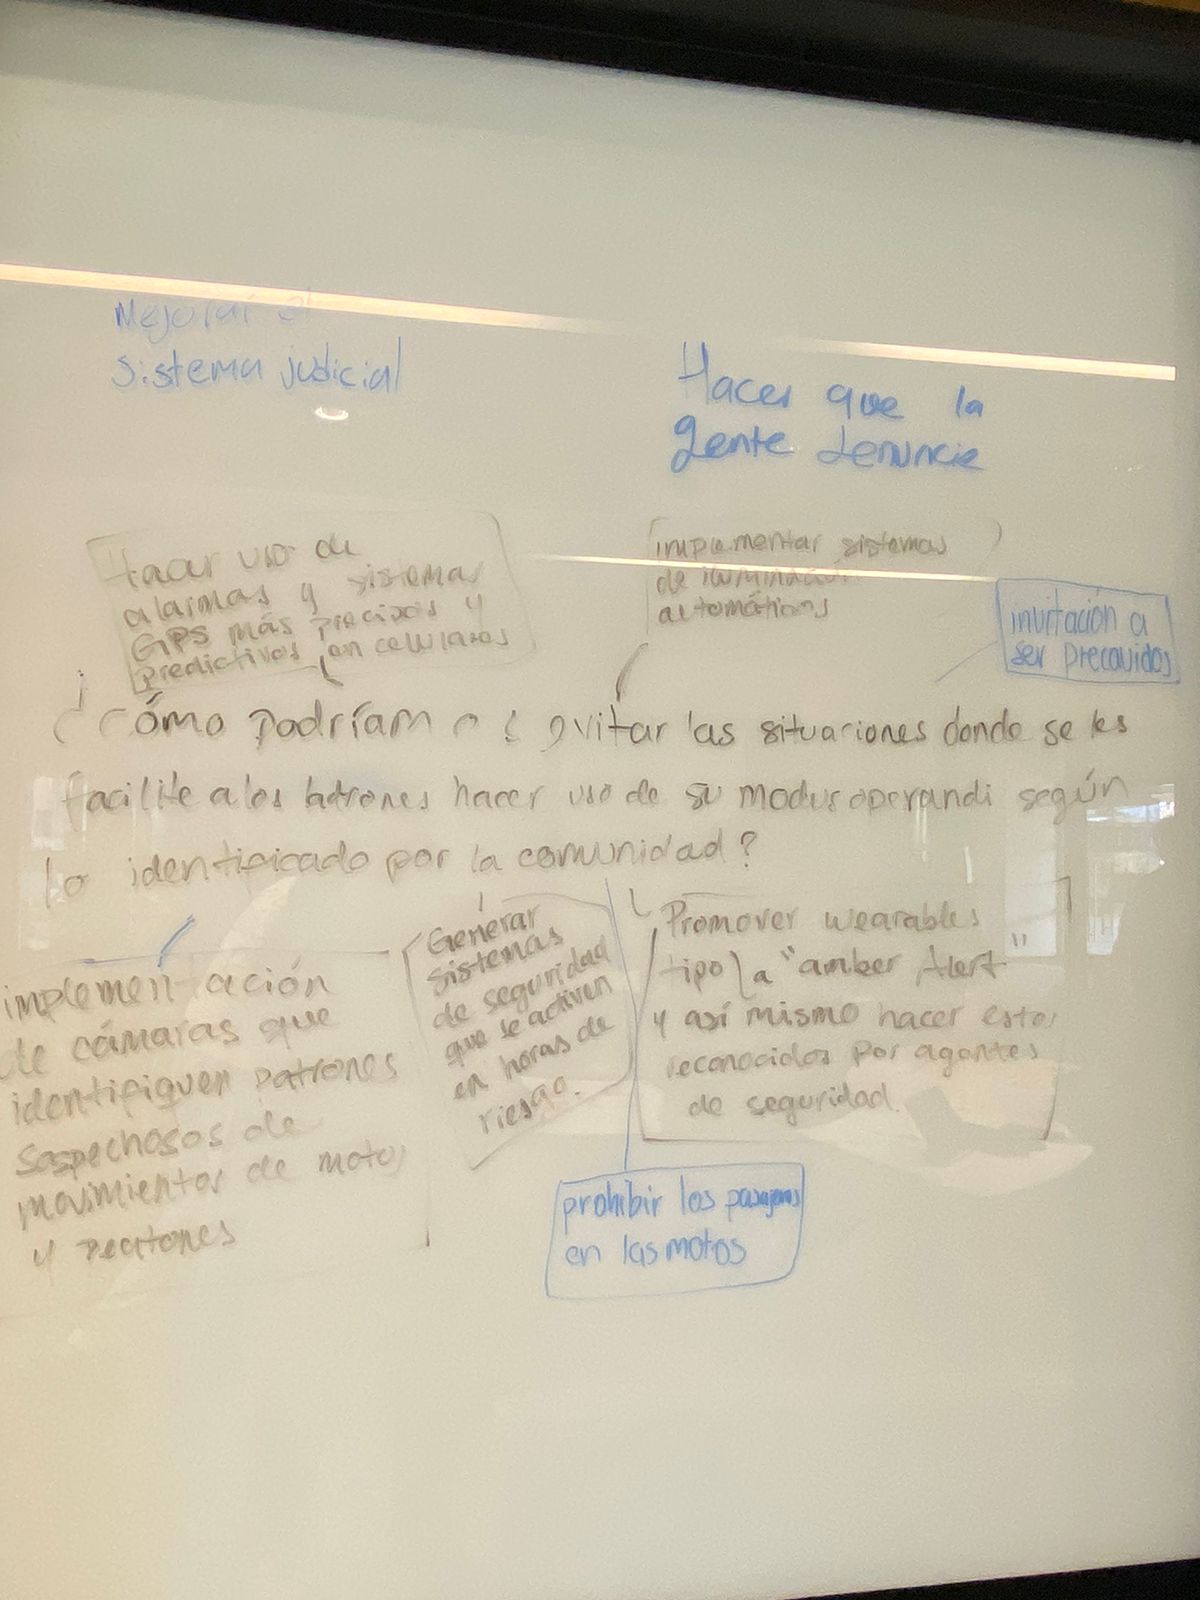 Mejorar el
sistema judicial
Hacer que la
gente denuncie
Hacer uso de
alarmas y sistemas
GPS más precisos y
predictivos en celulares
implementar sistemas
de iluminación
automáticos
invitación a
ser precavidos
¿Cómo podríamos evitar las situaciones donde se les
facilite a los ladrones hacer uso de su modus operandi según
lo identificado por la comunidad?
implementación
de cámaras que
identifiquen patrones
sospechosos de
movimientos de motos
y peatones
Generar
sistemas
de seguridad
que se activen
en horas de
riesgo.
Promover wearables
tipo la "amber Alert"
y así mismo hacer estos
reconocidos por agentes
de seguridad.
prohibir los pasajeros
en las motos